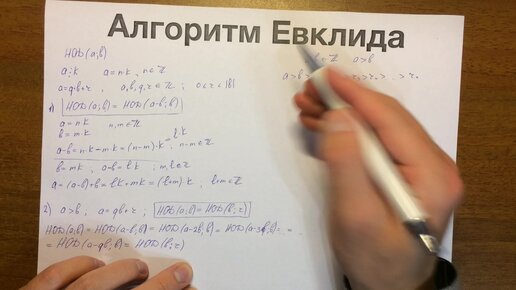 Алгоритм Евклида
НОД(a;b)
a⋮k   a=n·k, n∈ℤ
a=q·b+r,   a,b,q,r∈ℤ;   0≤r<|b|
1) НОД(a;b)=НОД(a-b;b)
a=n·k   n,m∈ℤ
b=m·k
a-b=n·k-m·k=(n-m)·k, n-m∈ℤ
b=mk, a-b=lk; m,l∈ℤ
a=(a-b)+b=lk+mk=(l+m)·k, l+m∈ℤ
2) a>b, a=qb+r; НОД(a;b)=НОД(b;r)
НОД(a;b)=НОД(a-b;b)=НОД(a-2b;b)=НОД(a-3b;b)=...=
=НОД(a-qb;b)=НОД(b;r)
a>b